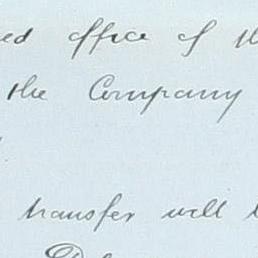 ed office of th
the Company
transfer will